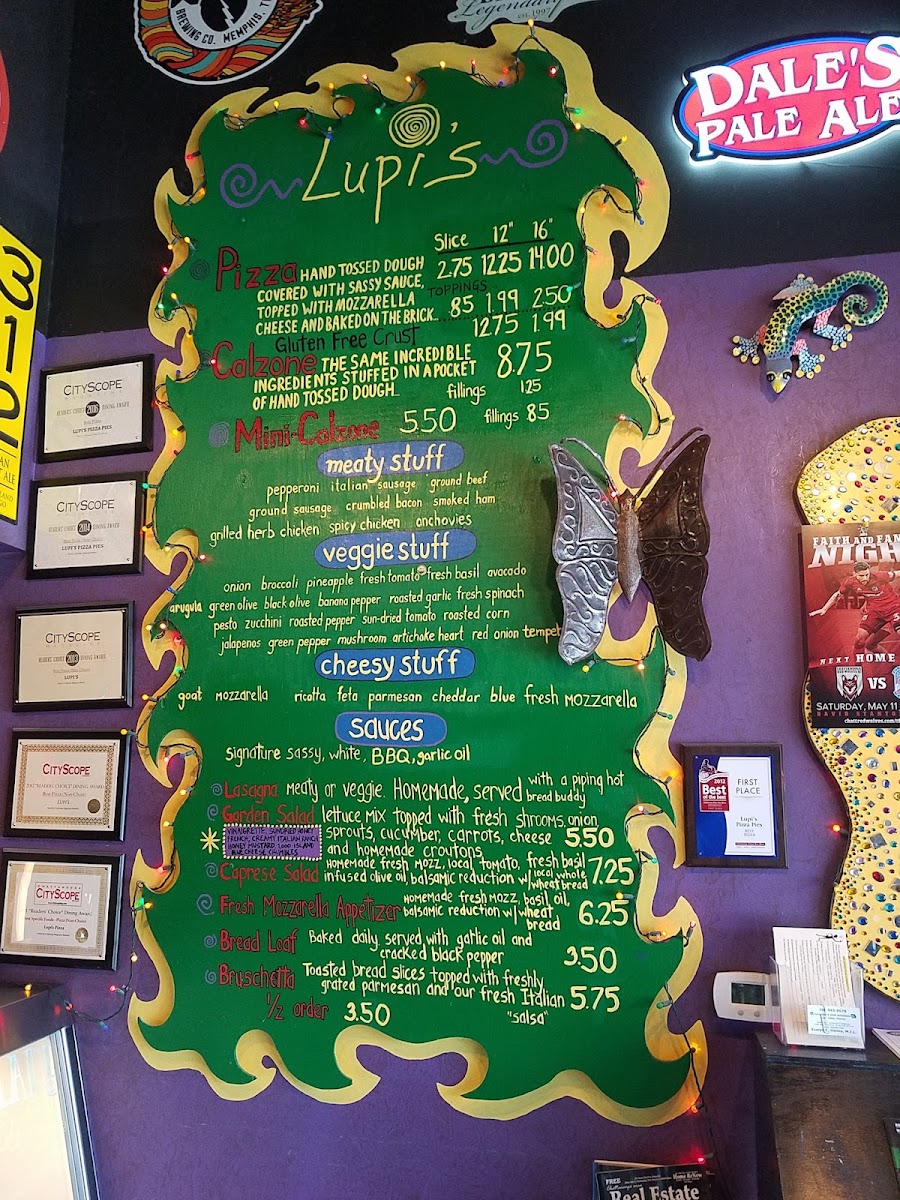 BREWING CO. MEMPHIS, TN
Legendary
EST. 1997
DALE'S
PALE ALE
312
Lupi's
Slice 12" 16"
Pizza HAND TOSSED DOUGH 2.75 12.25 14.00
COVERED WITH SASSY SAUCE, TOPPINGS
TOPPED WITH MOZZARELLA .85 1.99 2.50
CHEESE AND BAKED ON THE BRICK...
Gluten Free Crust 12.75 1.99
Calzone THE SAME INCREDIBLE 8.75
INGREDIENTS STUFFED IN A POCKET
OF HAND TOSSED DOUGH... fillings 1.25
Mini-Calzone 5.50 fillings .85
meaty stuff
pepperoni italian sausage ground beef
ground sausage crumbled bacon smoked ham
grilled herb chicken spicy chicken anchovies
veggie stuff
onion broccoli pineapple fresh tomato fresh basil avocado
arugula green olive black olive banana pepper roasted garlic fresh spinach
pesto zucchini roasted pepper sun-dried tomato roasted corn
jalapenos green pepper mushroom artichoke heart red onion tempeh
cheesy stuff
goat mozzarella ricotta feta parmesan cheddar blue fresh mozzarella
sauces
signature sassy, white, BBQ, garlic oil
Lasagna meaty or veggie. Homemade, served with a piping hot
bread buddy
Garden Salad lettuce mix topped with fresh shrooms, onion,
sprouts, cucumber, carrots, cheese 5.50
and homemade croutons
VINAIGRETTE, SUNDRIED HONEY
FRENCH, CREAMY ITALIAN, RANCH,
HONEY MUSTARD, 1,000 ISLAND
BLUE CHEESE CRUMBLES
Caprese Salad homemade fresh mozz, local tomato, fresh basil
infused olive oil, balsamic reduction w/ local whole wheat bread 7.25
Fresh Mozzarella Appetizer homemade fresh mozz, basil, oil,
balsamic reduction w/ wheat bread 6.25
Bread Loaf Baked daily, served with garlic oil and
cracked black pepper 3.50
Bruschetta Toasted bread slices topped with freshly
grated parmesan and our fresh Italian 5.75
"salsa"
1/2 order 3.50
CITYSCOPE
READERS' CHOICE 2016 DINING AWARD
LUPI'S PIZZA PIES
CITYSCOPE
READERS' CHOICE 2014 DINING AWARD
LUPI'S PIZZA PIES
CITYSCOPE
READERS' CHOICE 2013 DINING AWARD
LUPI'S
CITYSCOPE
"READERS' CHOICE" DINING AWARD
Best Pizza (Non-Chain)
LUPI'S
CITYSCOPE
"Readers' Choice" Dining Award
Lupi's Pizza
FAITH AND FAM
NIGH
NEXT HOME
VS
SATURDAY, MAY 11
2012
Best
of the best
FIRST
PLACE
Lupi's
Pizza Pies
FREE
Real Estate